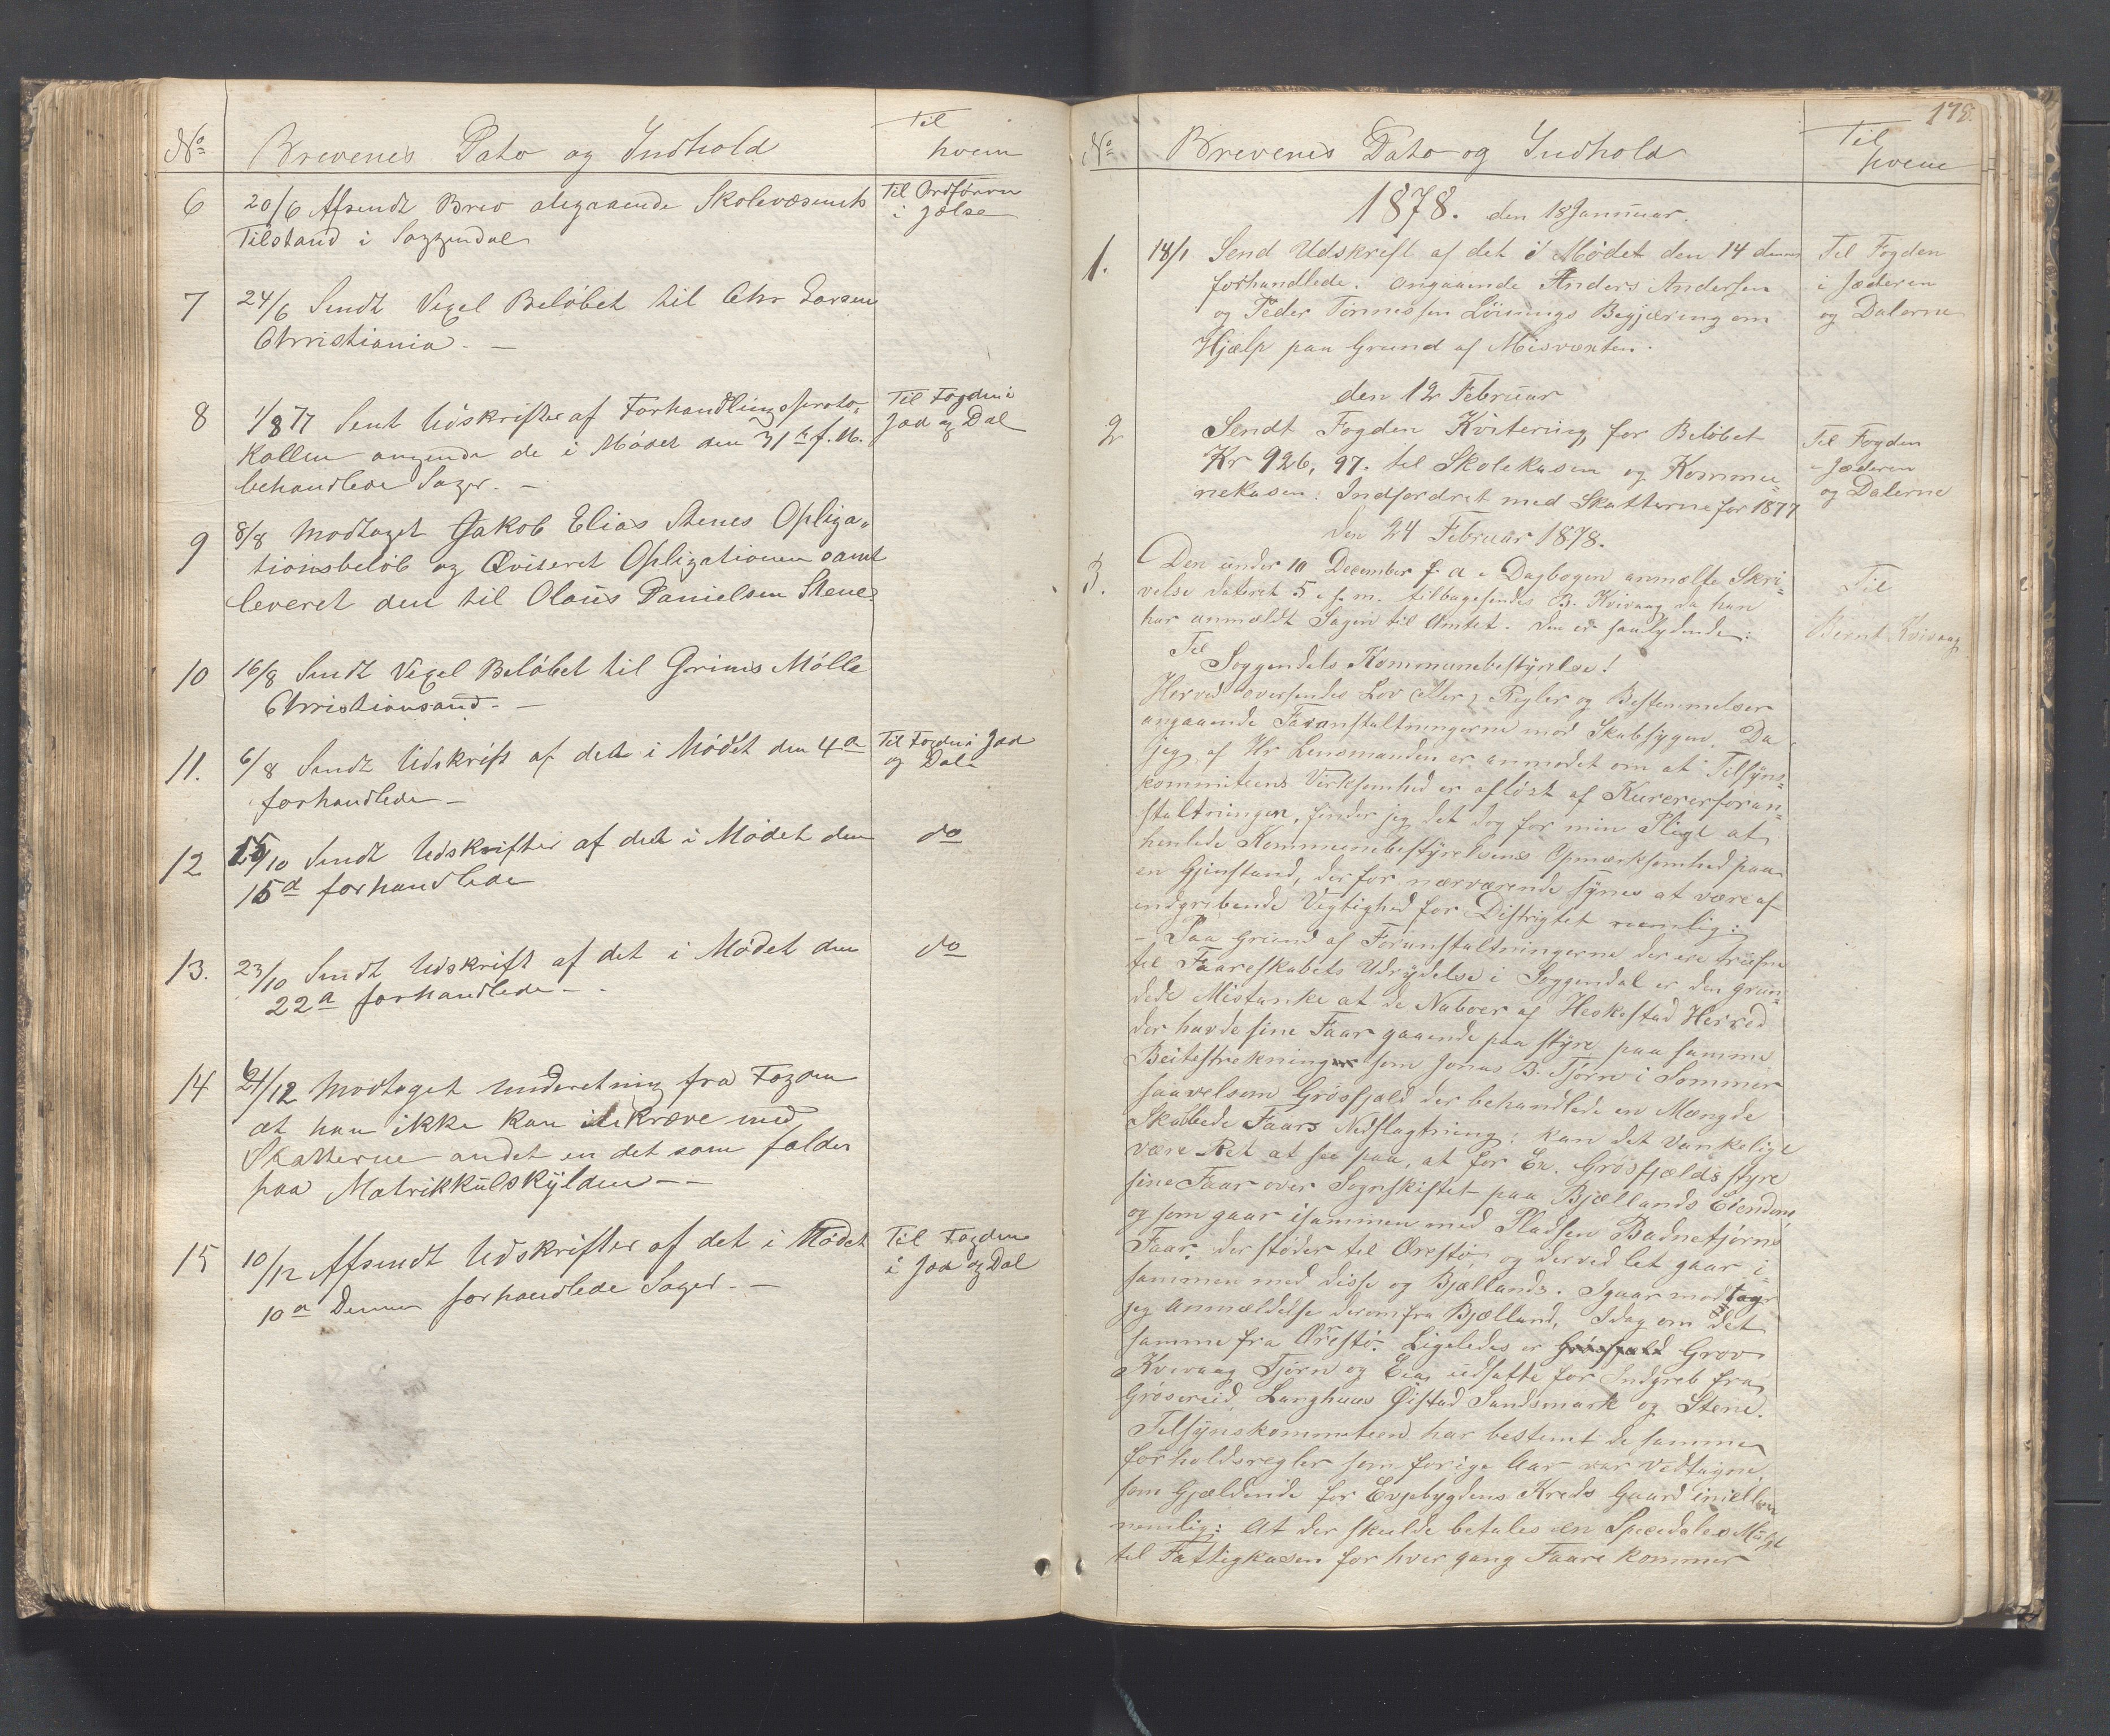 No Brevenes Dato og Indhold Til hvem
6 20/6 Afsendt Brev angaaende Skolevæsenets Til Ordføreren
Tilstand i Soggendal i Jølse
7 24/6 Sendt Vexel Beløbet til Chr Larsen
Christiania. —
8 1/8 77 Sent Udskrifter af Forhandlingsproto- Til Fogden i
kollen angende de i Mødet den 31te f. M. Jad og Dal
behandlede Sager. —
9 8/8 Modtaget Jakob Elias Stenes Opliga-
tionsbeløb og Qviteret Opligationen samt
leveret den til Olaus Danielsen Stene.
10 16/8 Sendt Vexel Beløbet til Grims Mølle
Christiansand. —
11. 6/8 Sendt Udskrift af det i Mødet den 4de Til Fogden i Jad
forhandlede — og Dal
12 /10 Sendt Udskrifter af det i Mødet den do
15d forhandlede
13. 23/10 Sendt Udskrift af det i Mødet den do
22d forhandlede —
14 21/12 Modtaget underetning fra Fogden
at han ikke kan inkræve med
Skatterne andet en det som falder
paa Matrikkulskylden — —
15 10/12 Afsendt Udskrifter af det i Mødet Til Fogden
10d Dennes forhandlede Sager. — i Jad og Dal
178.
No Brevenes Dato og Indhold Til hvem
1878. den 18 Januar.
1. 18/1 Send Udskrift af det i Mødet den 14 dennes Til Fogden
forhandlede. angaaende Anders Andersen i Jæderen
og Peder Tønnessen Lønings Begjæring om og Dalerne
Hjælp paa Grund af Misvæxten.
den 12 Februar
2 Sendt Fogden Kvitering for Beløbet Til Fogden
Kr 926, 97. til Skolekasen og Kommu- i Jæderen
nekasen. Indfordret med Skatterne for 1877 og Dalerne
den 24 Februar 1878.
3. Den under 10 December f. a. i Dagbogen anmelte Skri- Til
velse dateret 5 s. m. tilbagesendes B. Kvivaag da han Bernt Kvivaag
har anmeldt Sagen til Amtet. den er saalydende:
Til
Soggendels Kommunebestyrelse!
Herved oversendes Lov etter Regler og Bestemmelser
angaaende Foranstaltningerne mod Skabsygen. Da
jeg af Hr Lensmanden er anmodet om at Tilsyns-
kommiteens Virksomhed er afløst af Kurererforan-
staltningen, finder jeg det dog for min Pligt at
henlede Kommunebestyrelsens Opmærksomhed paa
en Gjenstand, der for nærværende synes at være af
indgribende Vigtighed for Distrigtet nemlig:
— Paa Grund af Foranstaltningerne der ere trufne
til Faareskabets Udrydelse i Soggendal er den grun-
dede Mistanke at de Naboer af Heskestad Herred
der havde sine Faar gaaende paa styre paa samme
Beitestrekning som Jonas B. Tjørn i Sommer
saavelsom Grøsfjæld der behandlede en Mængde
Skabede Faars Nedslagtning: kan det vankeligt
være Ret at see paa, at for Ex. Grøsfjælds styre
sine Faar over Sogneskiftet paa Bjællands Eiendom,
og som gaar isammen med Pladsen Badnetjørns
Faar, der støder til Ørestø, og derved let gaar i-
sammen med disse og Bjællands. Igaar modtager
jeg Anmældelse derom fra Bjælland, Idag om det
samme fra Ørestø. Ligeledes er Grøsfjæld Grov
Kvivaag Tjørn og Eia udsatte for Indgreb fra
Grøsereid, Langhuus Øistad Sandsmark og Stene.
Tilsynskommiteen har bestemt de samme
forholdsregler som forige Aar var vedtagne,
som Gjældende for Evjebygdens Kreds Gaard imellem
nemlig: At der skulde betales en Speciedalers Mulgt
til Fattigkasen for hver gang Faare kommer